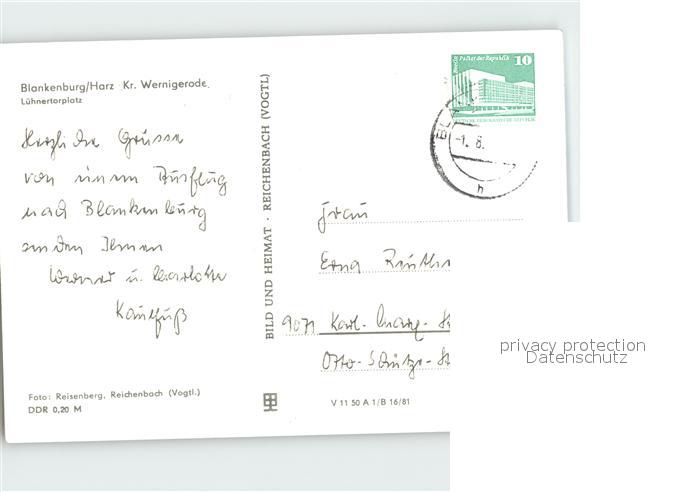 Blankenburg/Harz Kr. Wernigerode
Lühnertorplatz
Herzliche Grüsse
von einem Ausflug
nach Blankenburg
senden Ihnen
Werner u. Charlotte
Kaulfuß
Foto: Reisenberg, Reichenbach (Vogtl.)
DDR 0,20 M
BILD UND HEIMAT · REICHENBACH (VOGTL)
V 11 50 A 1/B 16/81
Palast der Republik
10
DEUTSCHE DEMOKRATISCHE REPUBLIK
-1. 8.
h
Frau
Erna
9071 Karl-Marx-
Otto-Schütze-
privacy protection
Datenschutz